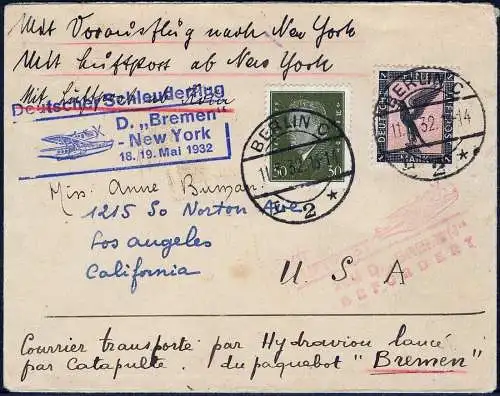 Mit Vorausflug nach New York
Mit Luftpost ab New York
Mit Luftpost ab Köln
Deutscher Schleuderflug
D. „Bremen"
- New York
18. 19. Mai 1932
BERLIN C
2
50 50
BERLIN C
2
DEUTSCHES
Miss Anne Buman
1215 So Norton Ave
Los Angeles
California
U S A
BEFÖRDERT
Courrier transporté par Hydravion lancé
par Catapulte du paquebot "Bremen"